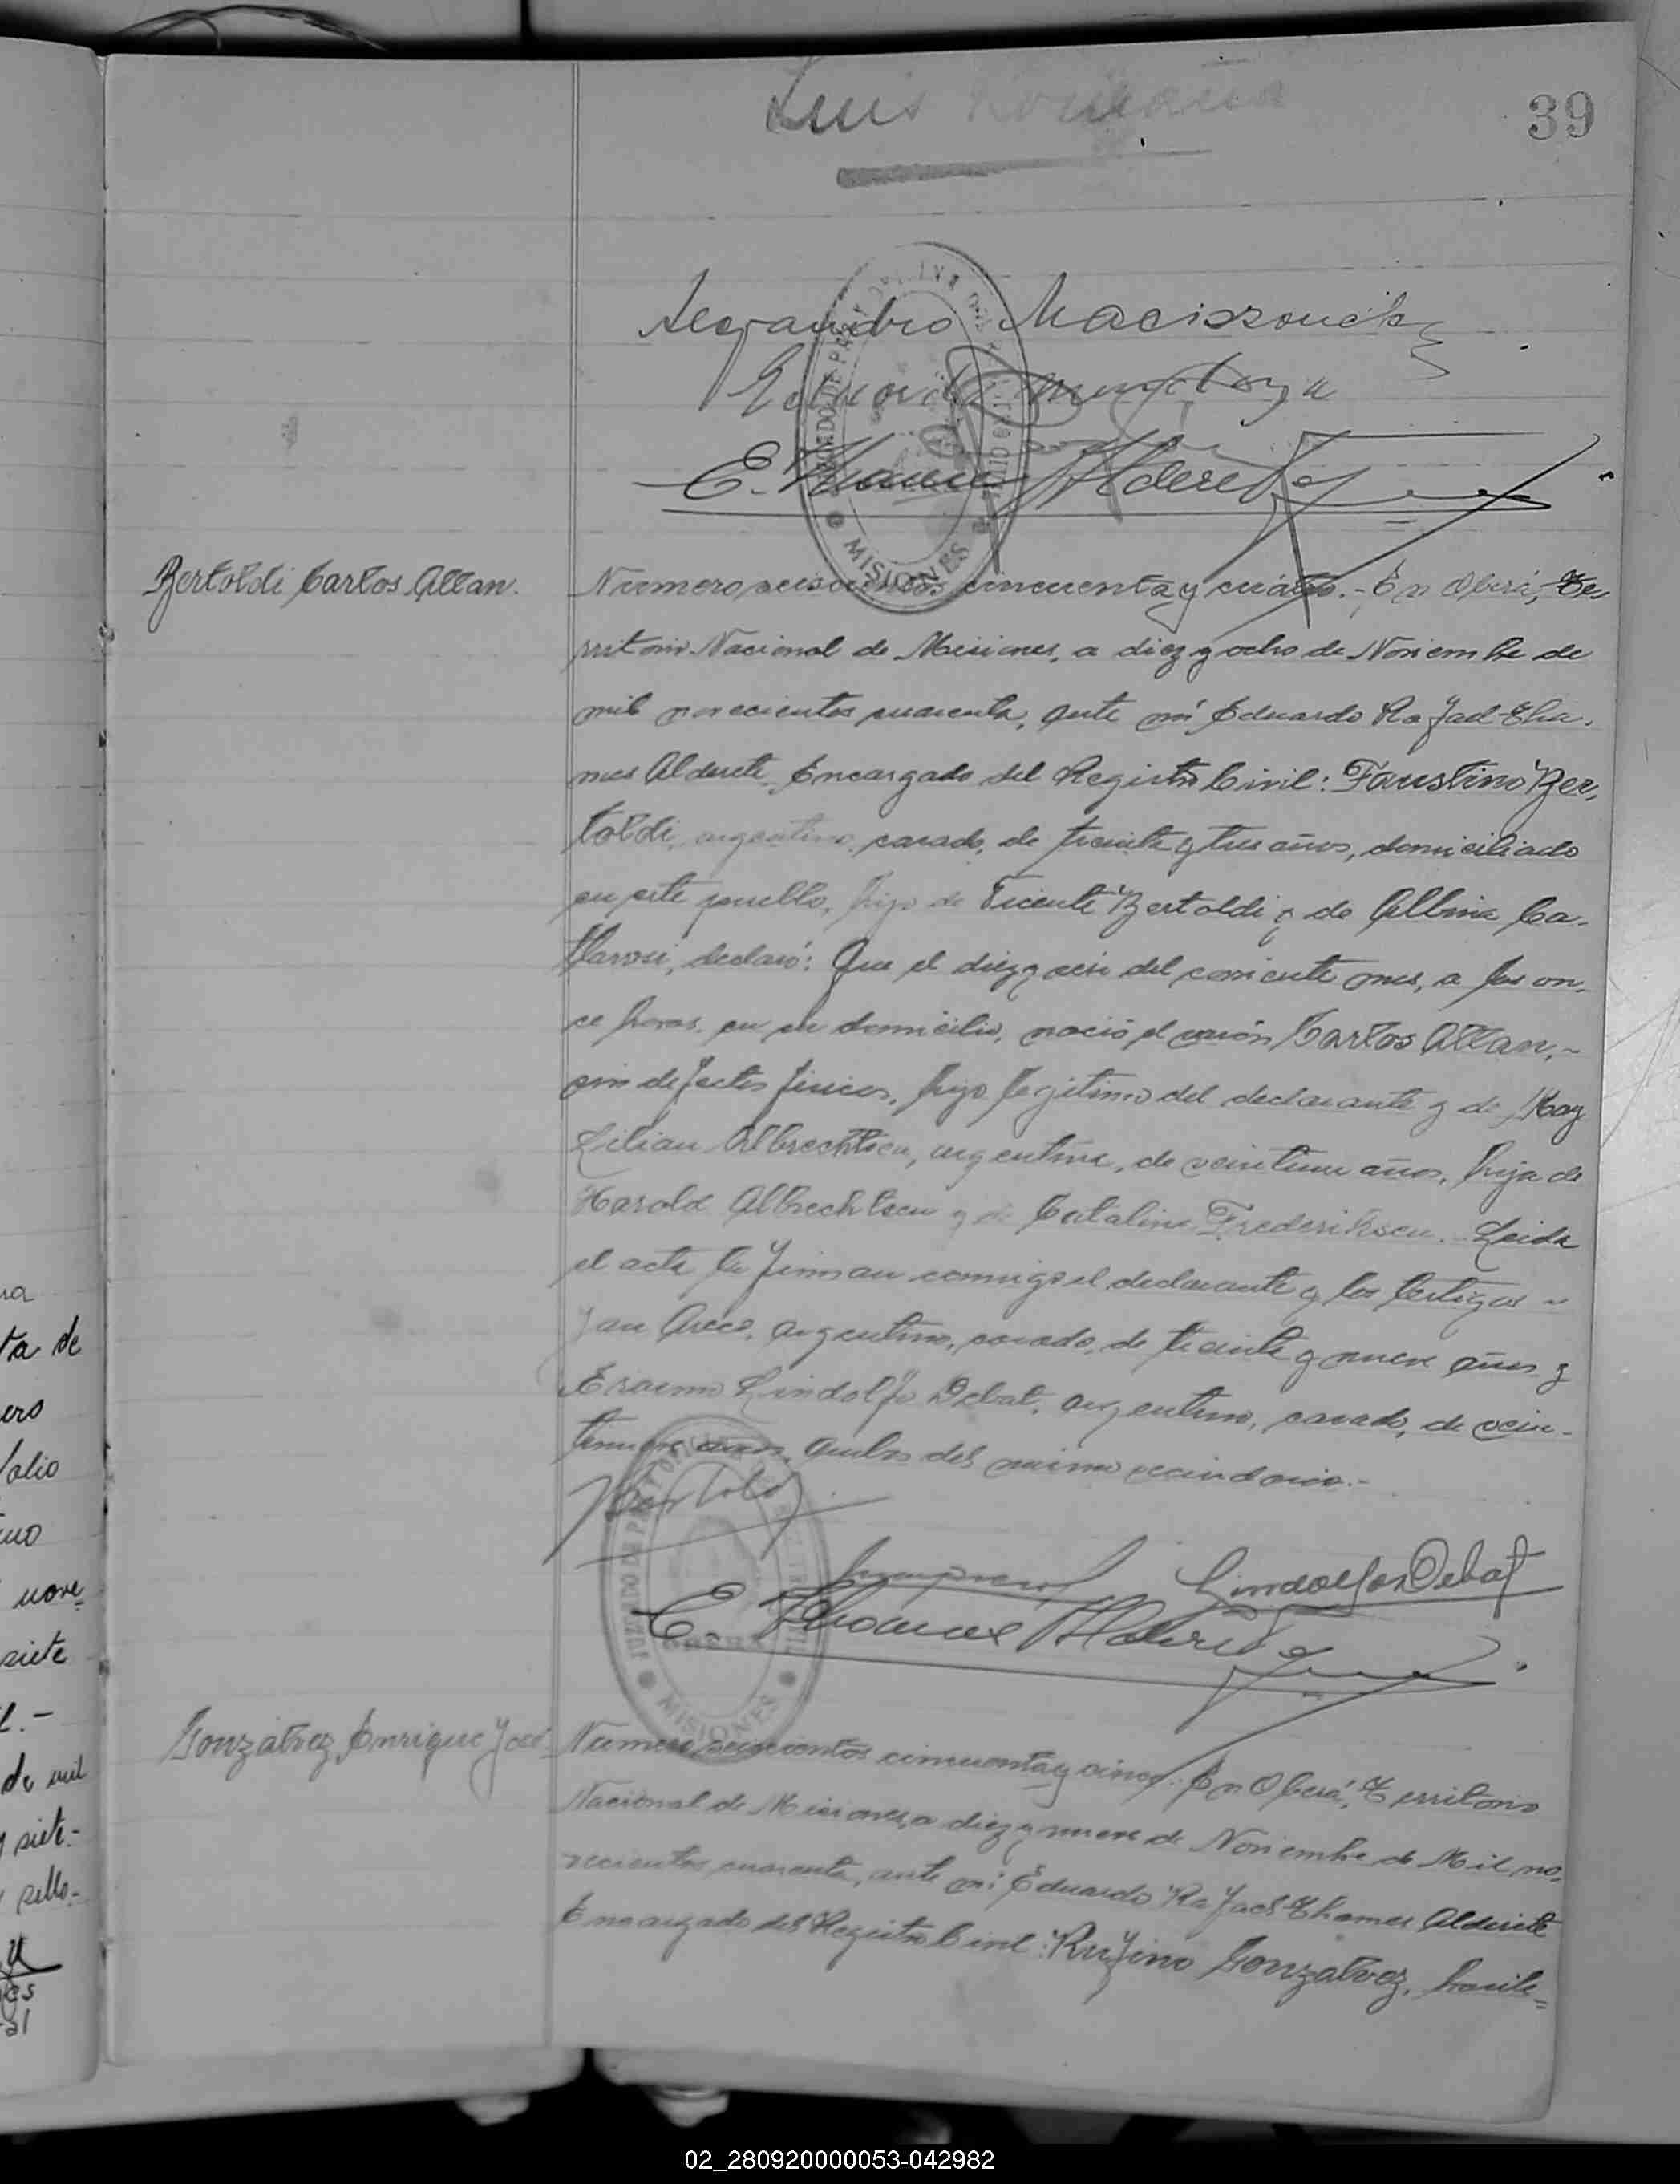 39
Luis
Eduardo Mendoza
E. Thames Alderete
MISIONES
Bertoldi Carlos Allan.
Numero seiscientos cincuenta y cuatro.- En Oberá, Te-
rritorio Nacional de Misiones, a diez y ocho de Noviembre de
mil novecientos cuarenta, ante mí Eduardo Rafael Tha-
mes Alderete, Encargado del Registro Civil: Faustino Ber-
toldi, argentino, casado, de treinta y tres años, domiciliado
en este pueblo, hijo de Vicente Bertoldi y de Albina Ca-
declaró: Que el diez y seis del corriente mes, a las on-
ce horas, en su domicilio, nació el varón Carlos Allan,-
sin defectos físicos, hijo legítimo del declarante y de May
Lilian Albrechtsen, argentina, de veintiun años, hija de
Harold Albrechtsen y de Catalina Frederiksen. Leida
el acta la firman conmigo el declarante y los testigos -
Juan argentino, casado, de treinta y nueve años y
Erasmo Lindolfo Debat, argentino, casado, de vein-
tinueve años, ambos del mismo vecindario.-
Bertoldi
Lindolfo Debat
E. Thames Alderete
MISIONES
Gonzalvez, Enrique José
Numero seiscientos cincuenta y cinco.- En Oberá, Territorio
Nacional de Misiones, a diez y nueve de Noviembre de Mil no-
vecientos cuarenta, ante mí Eduardo Rafael Thames Alderete
Encargado del Registro Civil: Rufino Gonzalvez, brasile=
ta de
ero
folio
nove
siete
l.-
de mil
y siete.-
y sello.-
02_280920000053-042982